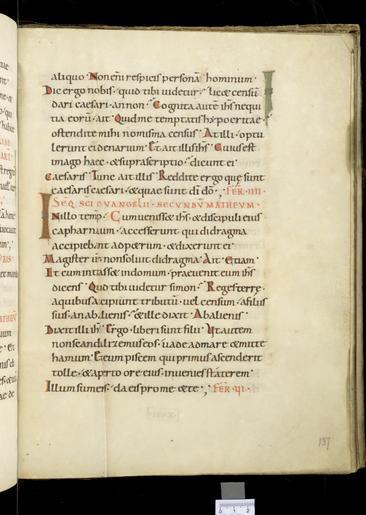 aliquo · Non enī respicis personā hominum ·
Dic ergo nobis · quid tibi uidetur · licet censū
dari caesari · an non · Cognita autē ihs nequi
tia eorū · ait · Quid me temptatis hypocritae ·
ostendite mihi nomisma census · At illi · optu
lerunt ei denarium · Et ait illis ihs · Cuius est
imago haec · & suprascriptio · dicunt ei
Caesaris · Tunc ait illis · Reddite ergo quę sunt
caesaris caesari · & quae sunt dī dō · FER · IIII ·
SEQ SCI EVANGELII · SECVNDV MATHEVM ·
In illo temp · Cum uenisset ihs & discipuli eius
capharnaum · accesserunt qui didragma
accipiebant ad petrum · & dixerunt ei ·
Magister ur̄ non soluit didragma · Ait · Etiam ·
Et cum intrasset in domum · praeuenit eum ihs
dicens · Quid tibi uidetur simon · Reges terrę ·
a quibus accipiunt tributū · uel censum · a filiis
suis · an ab alienis · & ille dixit · Ab alienis ·
Dixit illi ihs · Ergo · liberi sunt filii · Ut autem
non scandilizemus eos · uade ad mare & mitte
hamum · & eum piscem qui primus ascenderit
tolle · & aperto ore eius · inuenies staterem ·
Illum sumens · da eis pro me & te · FER · VI ·
137